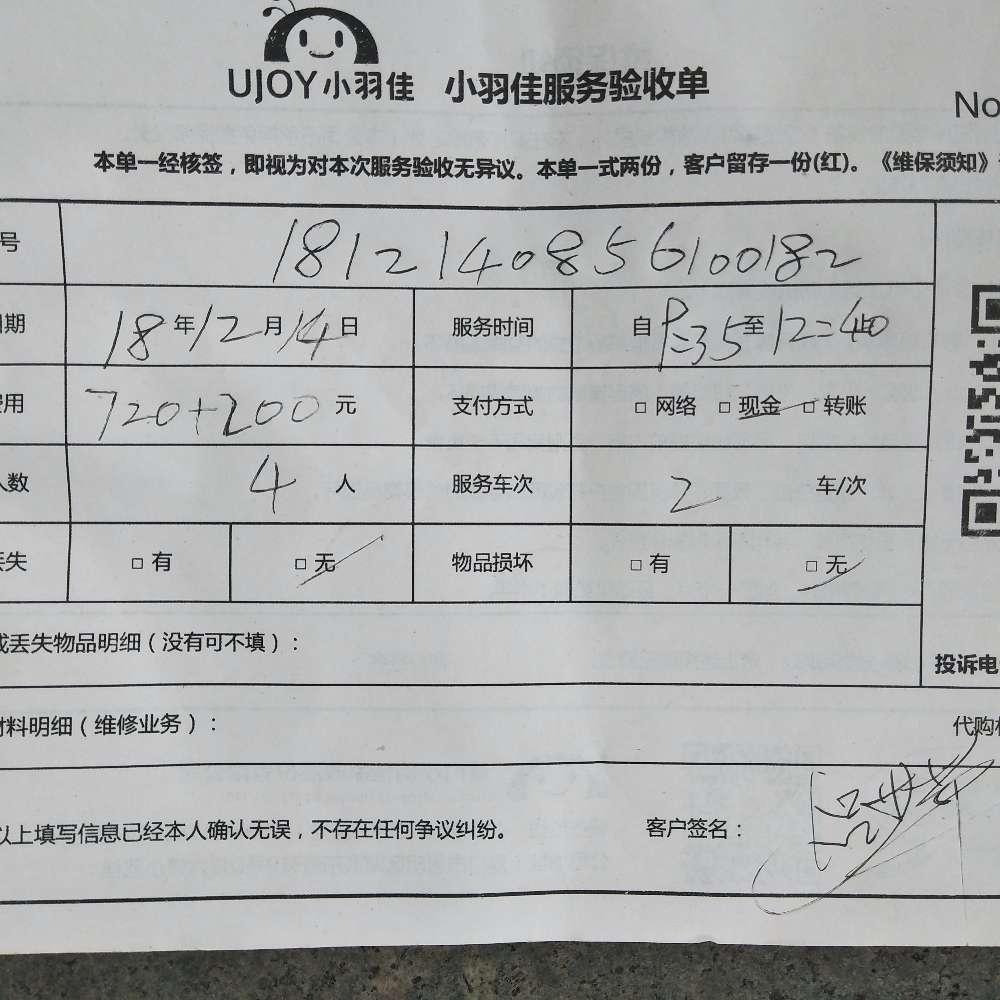 UJOY小羽佳 小羽佳服务验收单
No
本单一经核签，即视为对本次服务验收无异议。本单一式两份，客户留存一份(红)。《维保须知》
号 1812140856100182
期 18年12月14日 服务时间 自 至12:40
费用 720+200元 支付方式 □ 网络 □ 现金 □ 转账
人数 4人 服务车次 2 车/次
丢失 □ 有 □ 无 物品损坏 □ 有 □ 无
或丢失物品明细（没有可不填）：
投诉电
材料明细（维修业务）：
代购
以上填写信息已经本人确认无误，不存在任何争议纠纷。 客户签名：